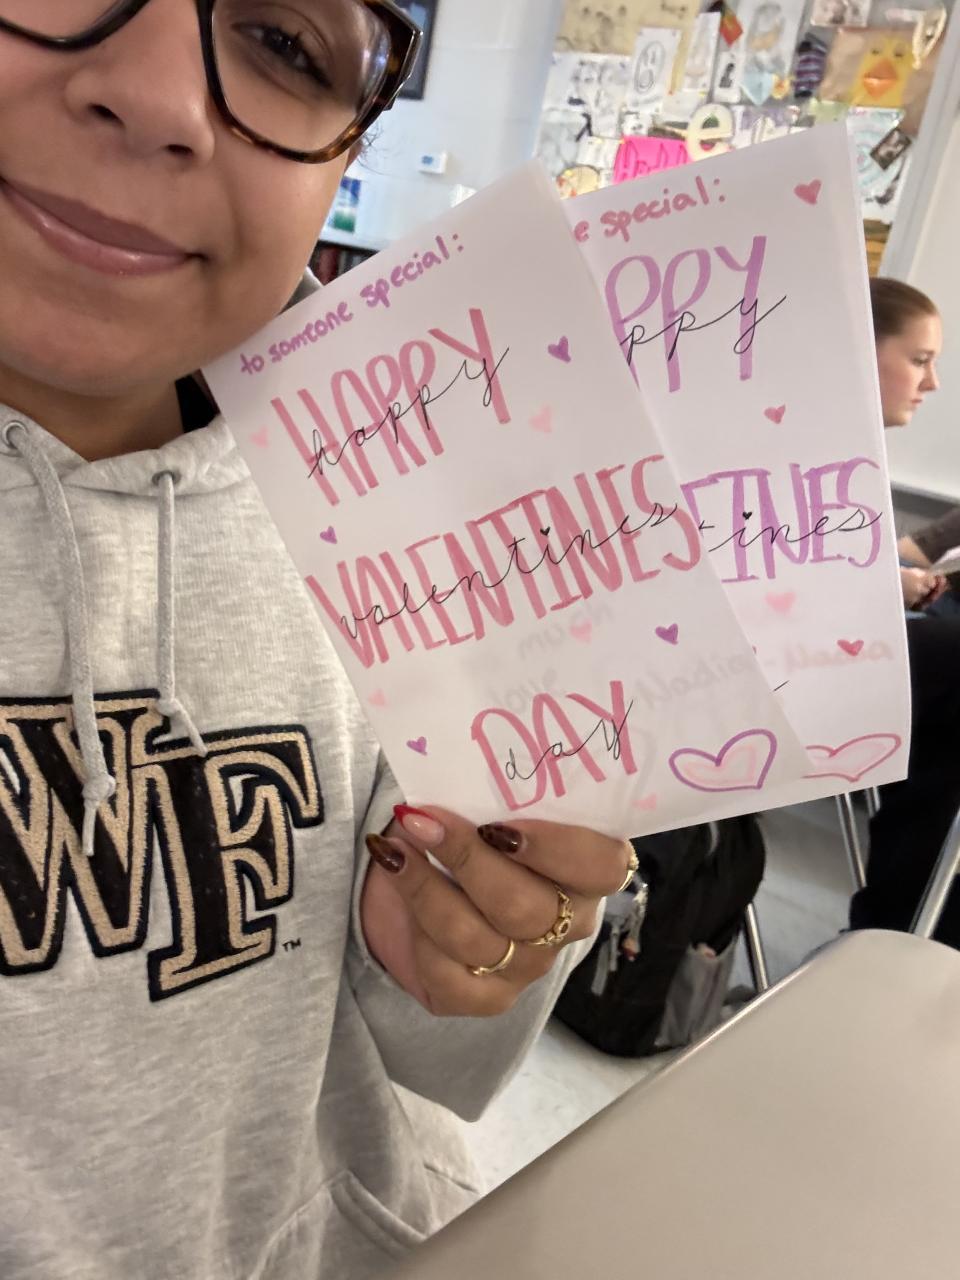 to someone special:
HAPPY
happy
VALENTINES
valentines
DAY
day
e special:
PPY
ppy
TINES
ines
WF
TM